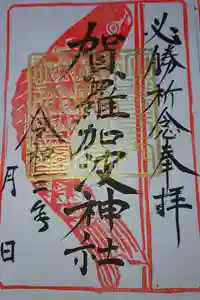 必勝祈念奉拝
賀羅加波神社
令和二年
月 日